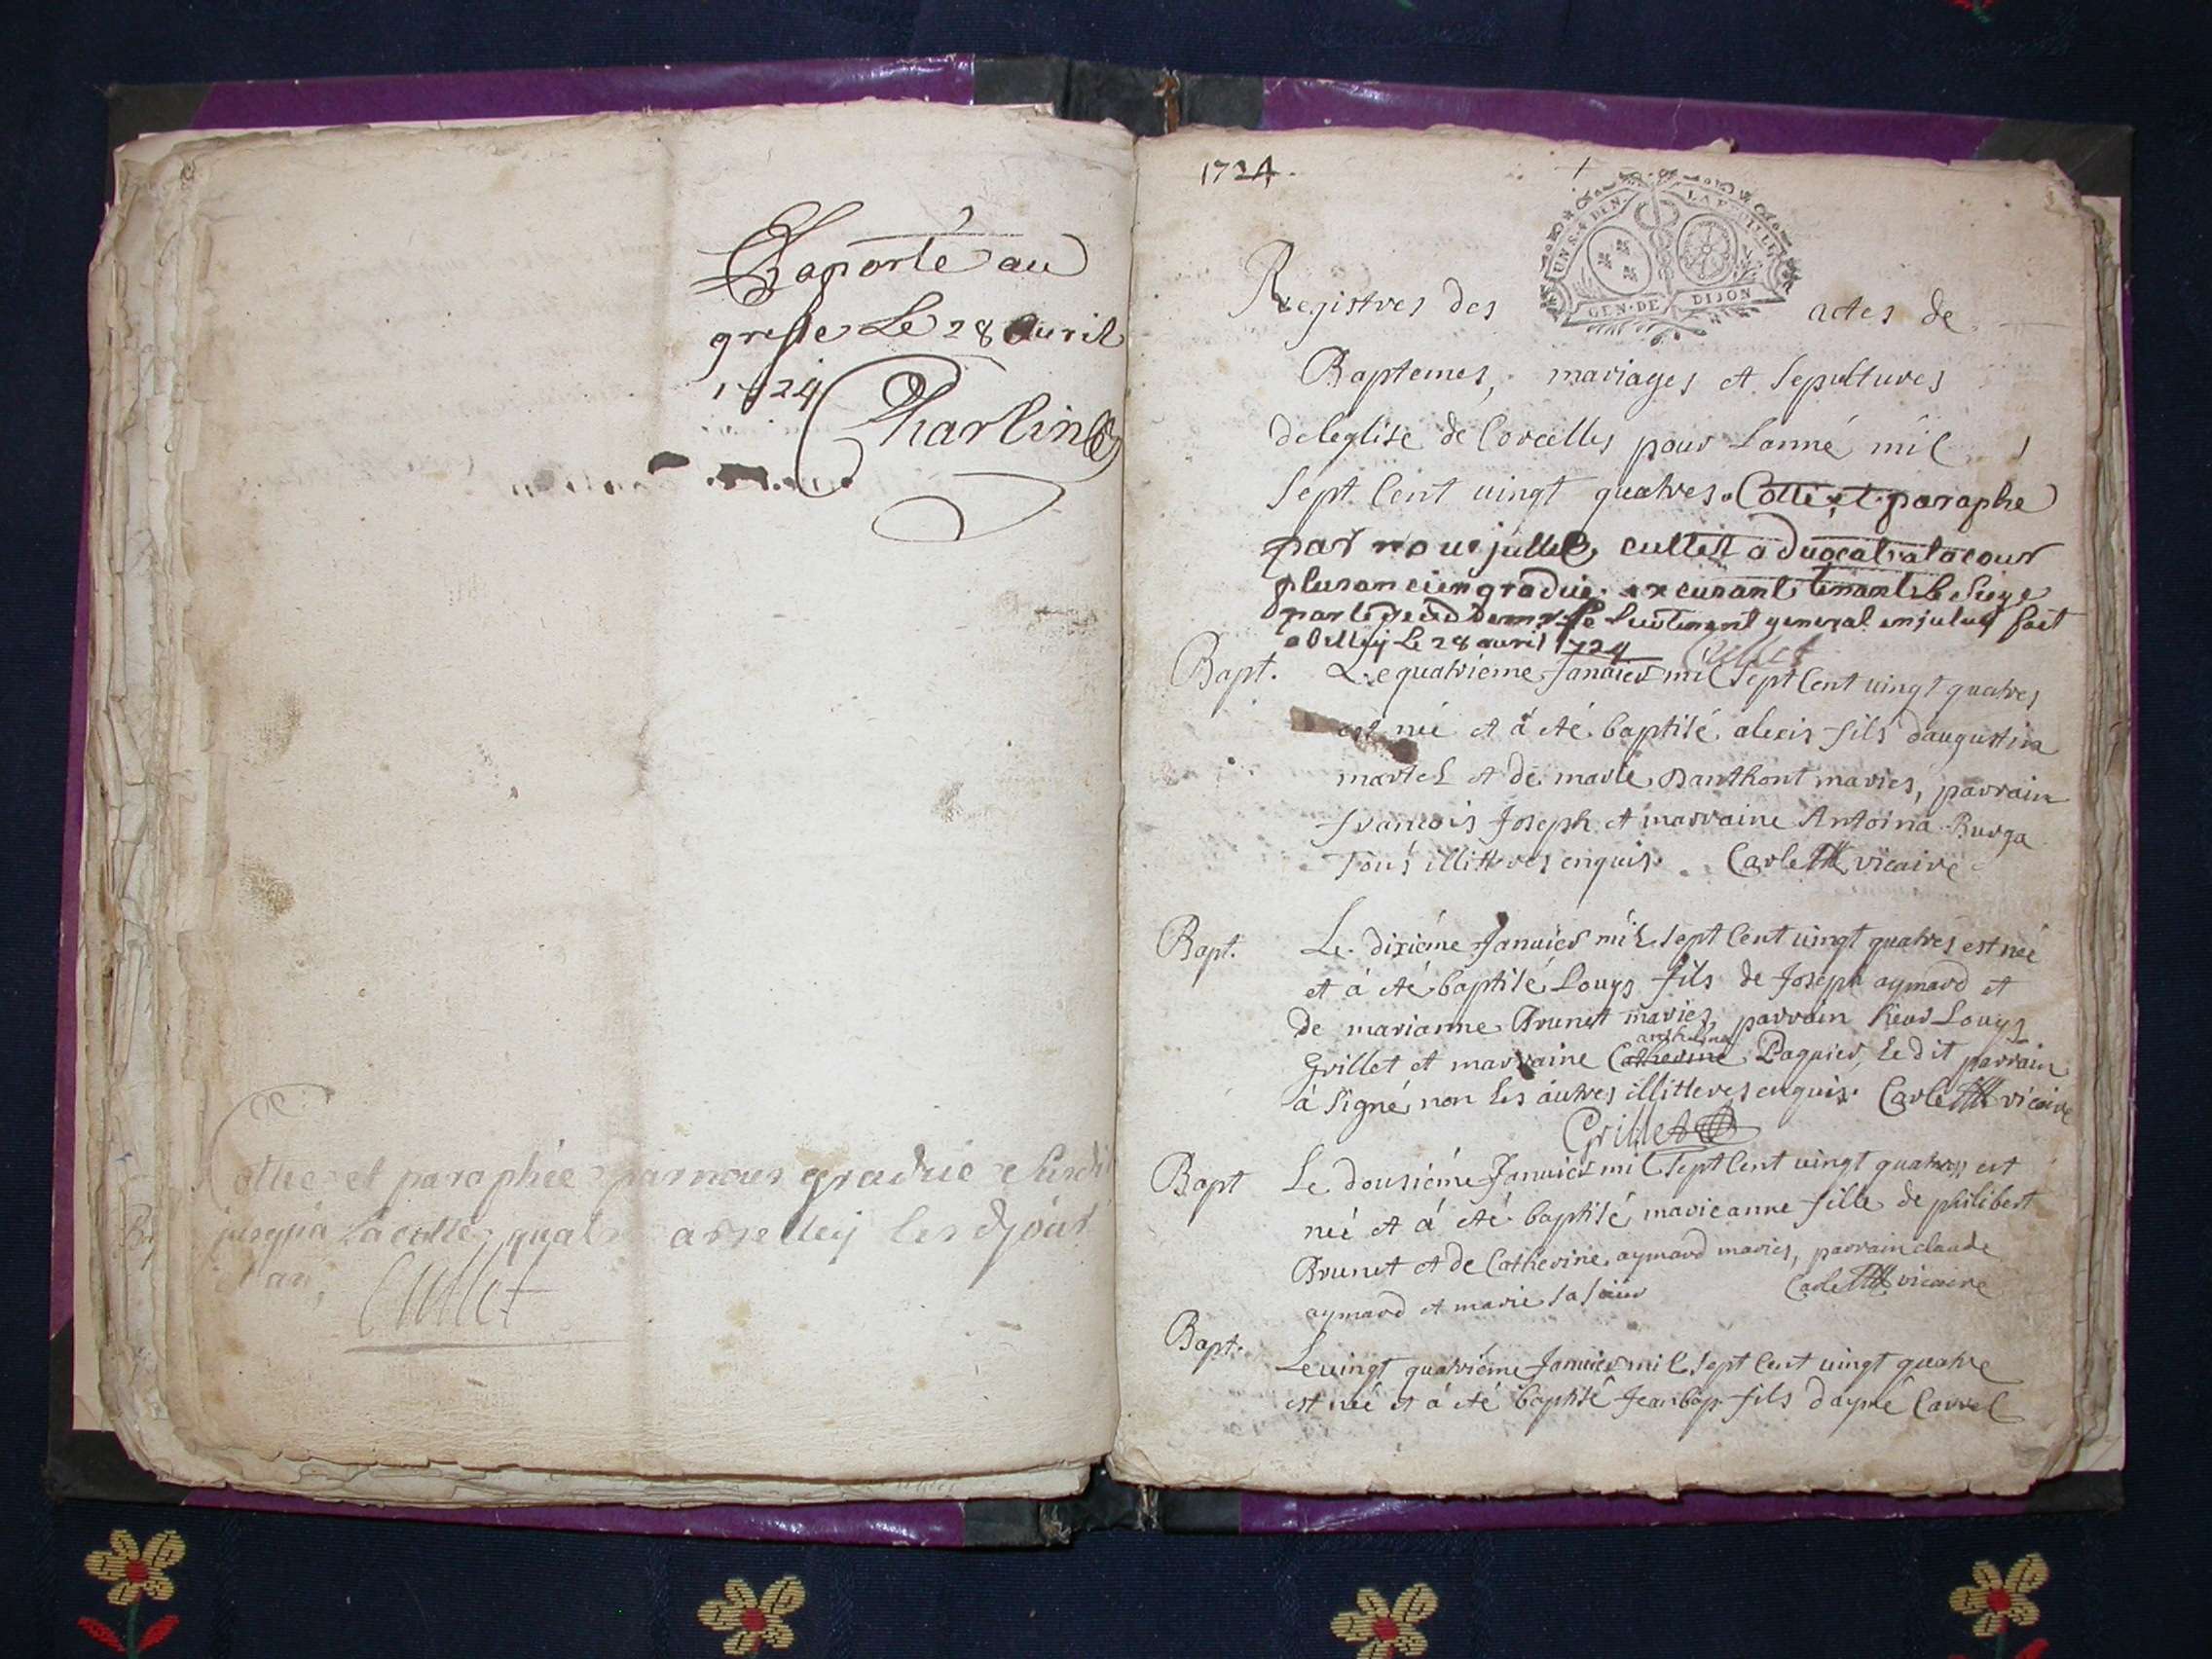 Raporté au
greffe Le 28 Auril
1724
Charlin
Cottée et paraphée par nous gradué susdit
jusqu'a La cotte quatre a Belley les d jour
et an
Cullet
1724.
UN S. 4 DEN. LA FEUILLE
GEN·DE DIJON
Registres des actes de
Baptemes, mariages et Sepultures
deleglise de Corcelles pour Lanné mil
Sept Cent uingt quatres. Cotté et paraphe
par nous cullet aduocat a la cour
plus ancien gradué tenant Le Siege
Lieutenant general fait
a Belley Le 28 auril 1724 Cullet
Bapt. Le quatriéme Januier mil Sept Cent uingt quatres
est née et à eté baptisé alexis fils daugustin
martel et de marie Danthont mariés, parrain
francois Joseph et marraine Antoina Burga
Tous illitteres enquis. Carle vicaire
Bapt. Le dixiéme Januier mil Sept Cent uingt quatres est née
et à eté baptisé Louys fils de Joseph aymard et
de marianne Brunet mariés, parrain Sieur Louys
Grillet et marraine Catherine Paquier, Le dit parrain
à Signé, non Les autres illitteres enquis. Carle vicaire
Grillet
Bapt Le dousiéme Januier mil Sept Cent uingt quatres est
née et à eté baptisé marieanne fille de philibert
Brunet et de Catherine aymard mariés, parrain claude
aymard et marie Sa Sœur Carle vicaire
Bapt. Le uingt quatriéme Januier mil Sept Cent uingt quatre
est née et à eté baptisé Jean bap. fils daymé Carrel